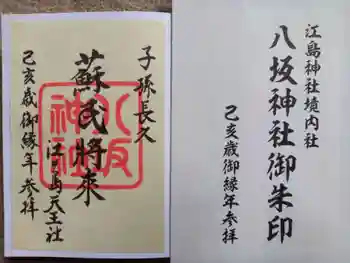 子孫長久
蘇民將來
八坂神社
江島天王社
己亥歳御縁年参拝
江島神社境内社
八坂神社御朱印
己亥歳御縁年参拝